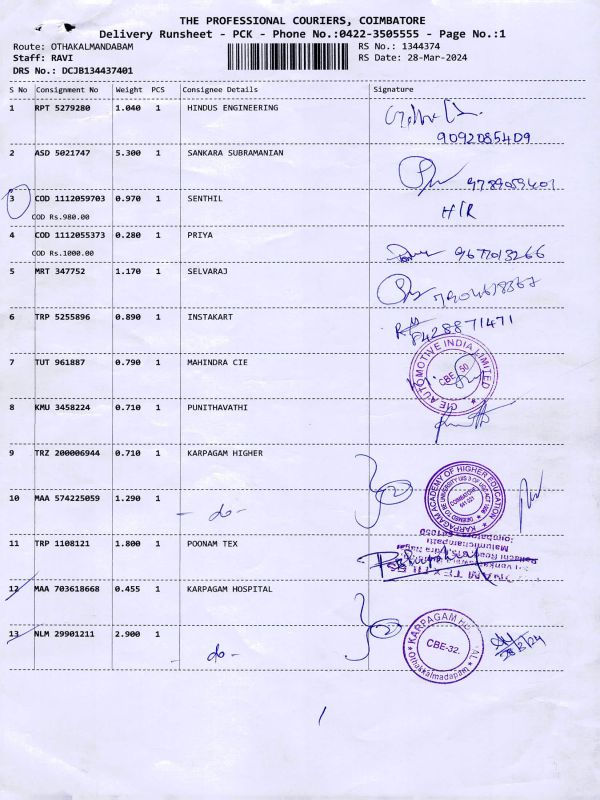 THE PROFESSIONAL COURIERS, COIMBATORE
Delivery Runsheet - PCK - Phone No.:0422-3505555 - Page No.:1
Route: OTHAKALMANDABAM RS No.: 1344374
Staff: RAVI RS Date: 28-Mar-2024
DRS No.: DCJB134437401
S No Consignment No Weight PCS Consignee Details Signature
1 RPT 5279280 1.040 1 HINDUS ENGINEERING
9092085409
2 ASD 5021747 5.300 1 SANKARA SUBRAMANIAN
9789059401
3 COD 1112059703 0.970 1 SENTHIL H/R
COD Rs.980.00
4 COD 1112055373 0.280 1 PRIYA
COD Rs.1000.00 9677013266
5 MRT 347752 1.170 1 SELVARAJ
6 TRP 5255896 0.890 1 INSTAKART
8428871471
7 TUT 961887 0.790 1 MAHINDRA CIE
CIE AUTOMOTIVE INDIA LIMITED
CBE 50
8 KMU 3458224 0.710 1 PUNITHAVATHI
9 TRZ 200006944 0.710 1 KARPAGAM HIGHER
2
KARPAGAM ACADEMY OF HIGHER EDUCATION
COIMBATORE
641 021
10 MAA 574225059 1.290 1
- do -
11 TRP 1108121 1.800 1 POONAM TEX
12 MAA 703618668 0.455 1 KARPAGAM HOSPITAL
2
KARPAGAM
CBE-32.
Othakkalmadapam
13 NLM 29901211 2.900 1
- do -